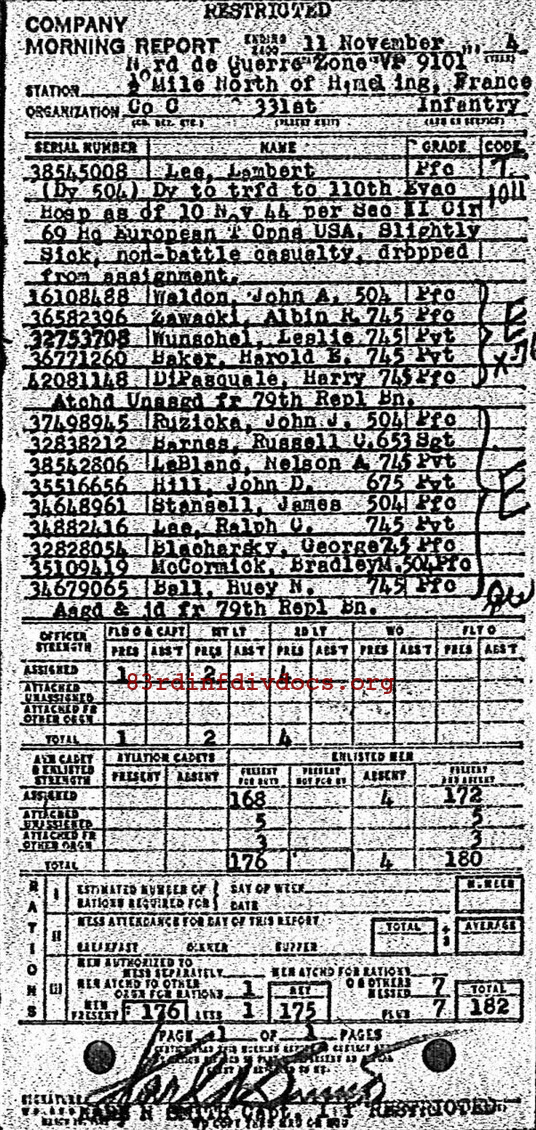 RESTRICTED
COMPANY
MORNING REPORT ENDING 2400 11 November 4
de Guerre Zone VP 9101
STATION Mile North of France
ORGANIZATION Co C 331st Infantry
SERIAL NUMBER NAME GRADE CODE
38545008 Lee, Lambert Pfc 7
(Dy 504) Dy to trfd to 110th Evac 1011
Hosp as of 10 Nov 44 per Sec II Cir
69 Hq European T Opns USA, Slightly
Sick, non-battle casualty, dropped
from assignment.
16108488 Waldon, John A. 504 Pfc
36582396 Zawacki, Albin R. 745 Pfc E
32753708 Wunschel, Leslie 745 Pvt
36771260 Baker, Harold E. 745 Pvt
42081148 DiPasquale, Harry 745 Pfc
Atchd Unasgd fr 79th Repl Bn.
37498945 Ruzicka, John J. 504 Pfc
32838212 Barnes, Russell C. 653 Sgt
38542806 LeBlanc, Nelson A 745 Pvt
35516656 Hill, John D. 675 Pvt E
34648961 Stansell, James 504 Pfc
34882416 Lee, Ralph C. 745 Pvt
32828054 Blacharsky, George 745 Pfc
35109419 McCormick, Bradley M. 504 Pfc
34679065 Ball, Huey N. 745 Pfc
Asgd & jd fr 79th Repl Bn.
OFFICER STRENGTH FLD O & CAPT 1ST LT 2D LT WO FLT O
PRES ABS'T PRES ABS'T PRES ABS'T PRES ABS'T PRES ABS'T
ASSIGNED 1 2 4
83rdinfdivdocs.org
ATTACHED UNASSIGNED
ATTACHED FR OTHER ORGN
TOTAL 1 2 4
AVN CADET & ENLISTED STRENGTH AVIATION CADETS ENLISTED MEN
PRESENT ABSENT PRESENT FOR DUTY PRESENT NOT FOR DY ABSENT PRESENT AND ABSENT
ASSIGNED 168 4 172
ATTACHED UNASSIGNED 5 5
ATTACHED FR OTHER ORGN 3 3
TOTAL 176 4 180
RATIONS
I ESTIMATED NUMBER OF RATIONS REQUIRED FOR DAY OF WEEK DATE NUMBER
II MESS ATTENDANCE FOR DAY OF THIS REPORT TOTAL ÷ 3 AVERAGE
BREAKFAST DINNER SUPPER
III MEN AUTHORIZED TO MESS SEPARATELY MEN ATCHD FOR RATIONS
MEN ATCHD TO OTHER ORGN FOR RATIONS 1 NET OTHERS MESSED 7 TOTAL
MEN PRESENT 176 LESS 1 175 PLUS 7 182
PAGE 1 OF 1 PAGES
SIGNATURE
N SMITH Capt. Inf RESTRICTED